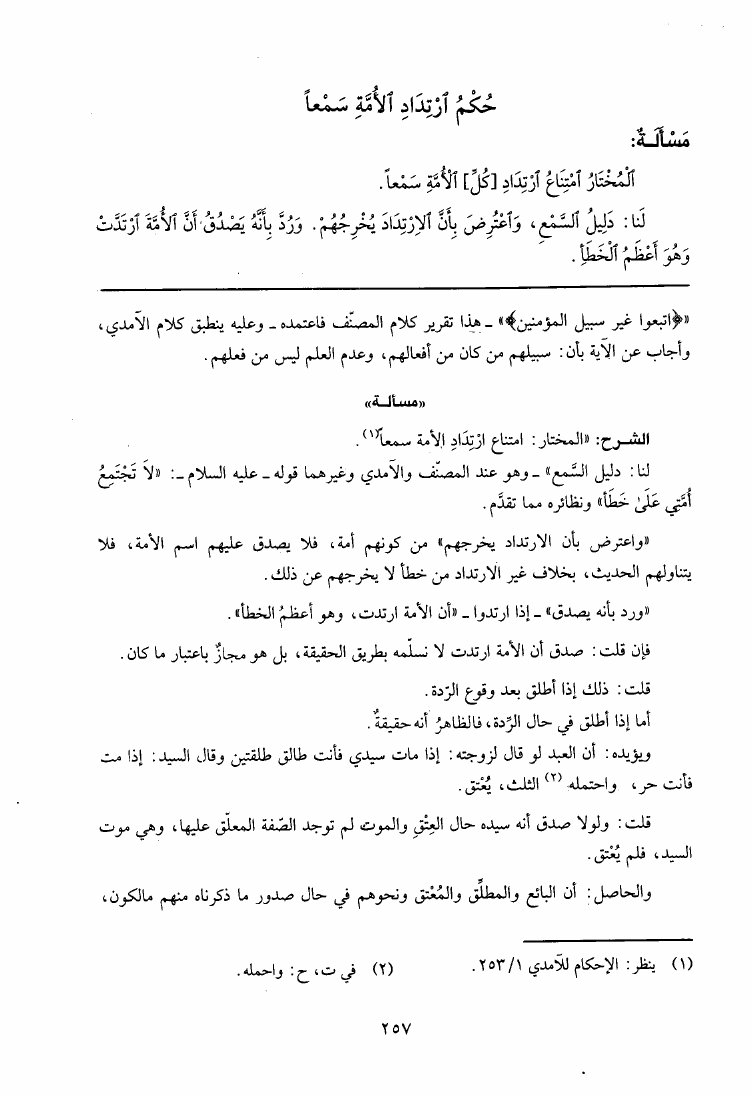 حُكْمُ ٱرْتِدَادِ ٱلأُمَّةِ سَمْعاً
مَسْأَلَةٌ:
ٱلْمُخْتَارُ ٱمْتِنَاعُ ٱرْتِدَادِ [كُلِّ] ٱلْأُمَّةِ سَمْعاً.
لَنَا: دَلِيلُ ٱلسَّمْعِ، وَٱعْتُرِضَ بِأَنَّ ٱلِارْتِدَادَ يُخْرِجُهُمْ. وَرُدَّ بِأَنَّهُ يَصْدُقُ أَنَّ ٱلأُمَّةَ ٱرْتَدَّتْ
وَهُوَ أَعْظَمُ ٱلْخَطَأِ.
«﴿اتبعوا غير سبيل المؤمنين﴾» ـ هذا تقرير كلام المصنّف فاعتمده ـ وعليه ينطبق كلام الآمدي،
وأجاب عن الآية بأن: سبيلهم من كان من أفعالهم، وعدم العلم ليس من فعلهم.
«مسألة»
الشرح: «المختار: امتناع ارْتِدَادِ الأمة سمعاً»(١).
لنا: دليل السَّمع» ـ وهو عند المصنِّف والآمدي وغيرهما قوله ـ عليه السلام ـ: «لاَ تَجْتَمِعُ
أُمَّتِي عَلَىٰ خَطَأ» ونظائره مما تقدَّم.
«واعترض بأن الارتداد يخرجهم» من كونهم أمة، فلا يصدق عليهم اسم الأمة، فلا
يتناولهم الحديث، بخلاف غير الارتداد من خطأ لا يخرجهم عن ذلك.
«ورد بأنه يصدق» ـ إذا ارتدوا ـ «أن الأمة ارتدت، وهو أعظمُ الخطأ».
فإن قلت: صدق أن الأمة ارتدت لا نسلّمه بطريق الحقيقة، بل هو مجازٌ باعتبار ما كان.
قلت: ذلك إذا أطلق بعد وقوع الرّدة.
أما إذا أطلق في حال الرِّدة، فالظاهرُ أنه حقيقةٌ.
ويؤيده: أن العبد لو قال لزوجته: إذا مات سيدي فأنت طالق طلقتين وقال السيد: إذا مت
فأنت حر، واحتمله(٢) الثلث، يُعْتق.
قلت: ولولا صدق أنه سيده حال العِتْقِ والموت لم توجد الصّفة المعلّق عليها، وهي موت
السيد، فلم يُعْتق.
والحاصل: أن البائع والمطلِّق والمُعْتق ونحوهم في حال صدور ما ذكرناه منهم مالكون،
(١) ينظر: الإحكام للآمدي ٢٥٣/١. (٢) في ت، ح: واحمله.
٢٥٧